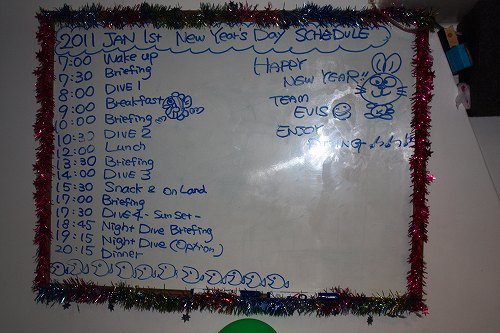 2011 JAN 1st New Year's Day SCHEDULE
7:00 Wake up
7:30 Briefing
8:00 DIVE 1
9:00 Breakfast
10:00 Briefing
10:30 DIVE 2
12:00 Lunch
13:30 Briefing
14:00 DIVE 3
15:30 Snack & on Land
17:00 Briefing
17:30 DIVE 4 - Sun Set -
18:45 Night Dive Briefing
19:15 Night Dive (Option)
20:15 Dinner
HAPPY
NEW YEAR!!
TEAM
EVIS
ENJOY